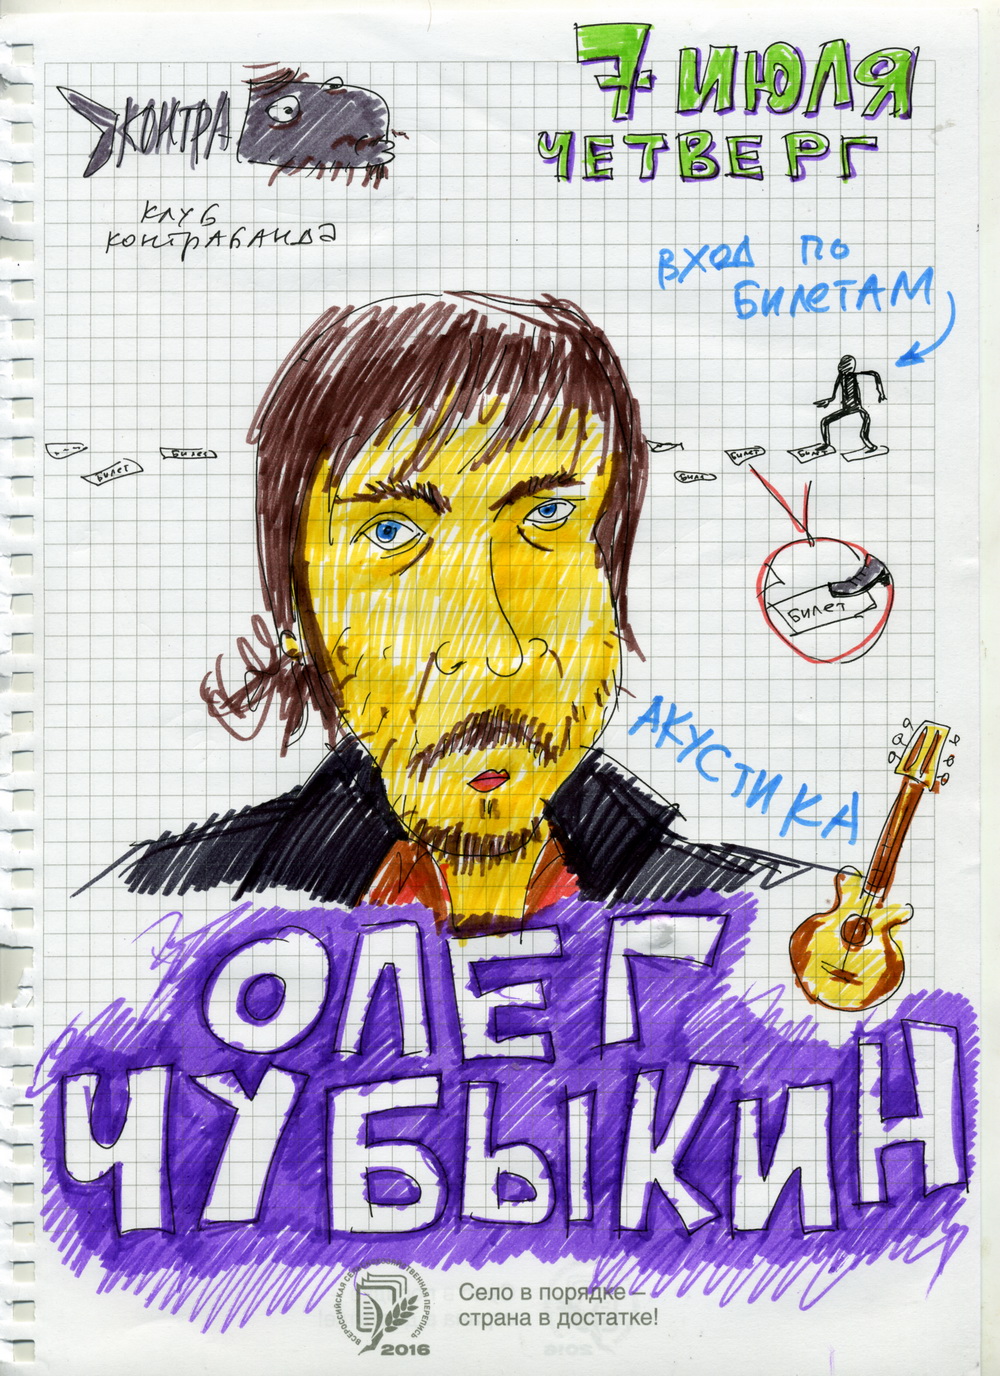 КОНТРА
КЛУБ
КОНТРАБАНДА
7 ИЮЛЯ
ЧЕТВЕРГ
ВХОД ПО
БИЛЕТАМ
БИЛЕТ
БИЛЕТ
БИЛЕТ
БИЛЕТ
БИЛЕТ
АКУСТИКА
ОЛЕГ
ЧУБЫКИН
ВСЕРОССИЙСКАЯ СЕЛЬСКОХОЗЯЙСТВЕННАЯ ПЕРЕПИСЬ
2016
Село в порядке –
страна в достатке!